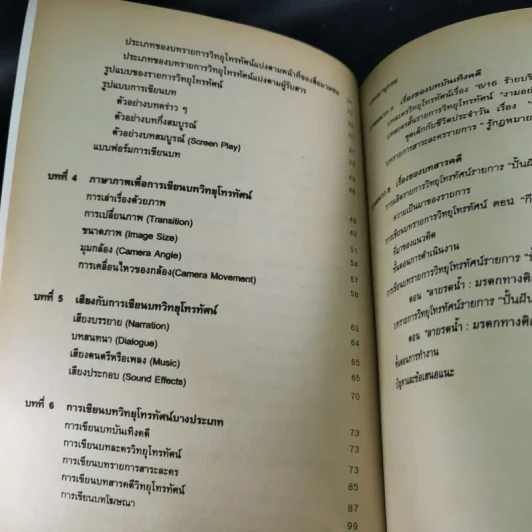 ประเภทของบทรายการวิทยุโทรทัศน์แบ่งตามหน้าที่ของสื่อมวลชน
ประเภทของบทรายการวิทยุโทรทัศน์แบ่งตามผู้รับสาร
รูปแบบของรายการวิทยุโทรทัศน์
รูปแบบการเขียนบท
ตัวอย่างบทคร่าว ๆ
ตัวอย่างบทกึ่งสมบูรณ์
ตัวอย่างบทสมบูรณ์ (Screen Play)
แบบฟอร์มการเขียนบท
บทที่ 4 ภาษาภาพเพื่อการเขียนบทวิทยุโทรทัศน์
การเล่าเรื่องด้วยภาพ
การเปลี่ยนภาพ (Transition) 49
ขนาดภาพ (Image Size) 49
มุมกล้อง (Camera Angle) 51
การเคลื่อนไหวของกล้อง(Camera Movement) 54
57
58
บทที่ 5 เสียงกับการเขียนบทวิทยุโทรทัศน์
เสียงบรรยาย (Narration) 63
บทสนทนา (Dialogue) 64
เสียงดนตรีหรือเพลง (Music) 65
เสียงประกอบ (Sound Effects) 65
70
บทที่ 6 การเขียนบทวิทยุโทรทัศน์บางประเภท
การเขียนบทบันเทิงคดี 73
การเขียนบทละครวิทยุโทรทัศน์ 73
การเขียนบทรายการสาระละคร 73
การเขียนบทสารคดีวิทยุโทรทัศน์ 85
การเขียนบทโฆษณา 87
99
เรื่องของบทบันเทิงคดี
บทละครวิทยุโทรทัศน์เรื่อง "6/16 ร้ายบริ
บทละครสั้นรายการวิทยุโทรทัศน์ "งามอย่
ชุดเด็กกับชีวิตประจำวัน เรื่อง
บทรายการสาระละครรายการ "รู้กฎหมาย
เรื่องของบทสารคดี
การผลิตรายการวิทยุโทรทัศน์รายการ "ปั้นฝั
ความเป็นมาของรายการ
การเขียนบทรายการวิทยุโทรทัศน์ ตอน "กี
ที่มาของแนวคิด
ขั้นตอนการดำเนินงาน
การเขียนบทรายการวิทยุโทรทัศน์รายการ
ตอน "ลายรดน้ำ : มรดกทางศิ
บทรายการวิทยุโทรทัศน์รายการ "ปั้นฝัน
ตอน "ลายรดน้ำ : มรดกทางศิ
ขั้นตอนการทำงาน
ปัญหาและข้อเสนอแนะ